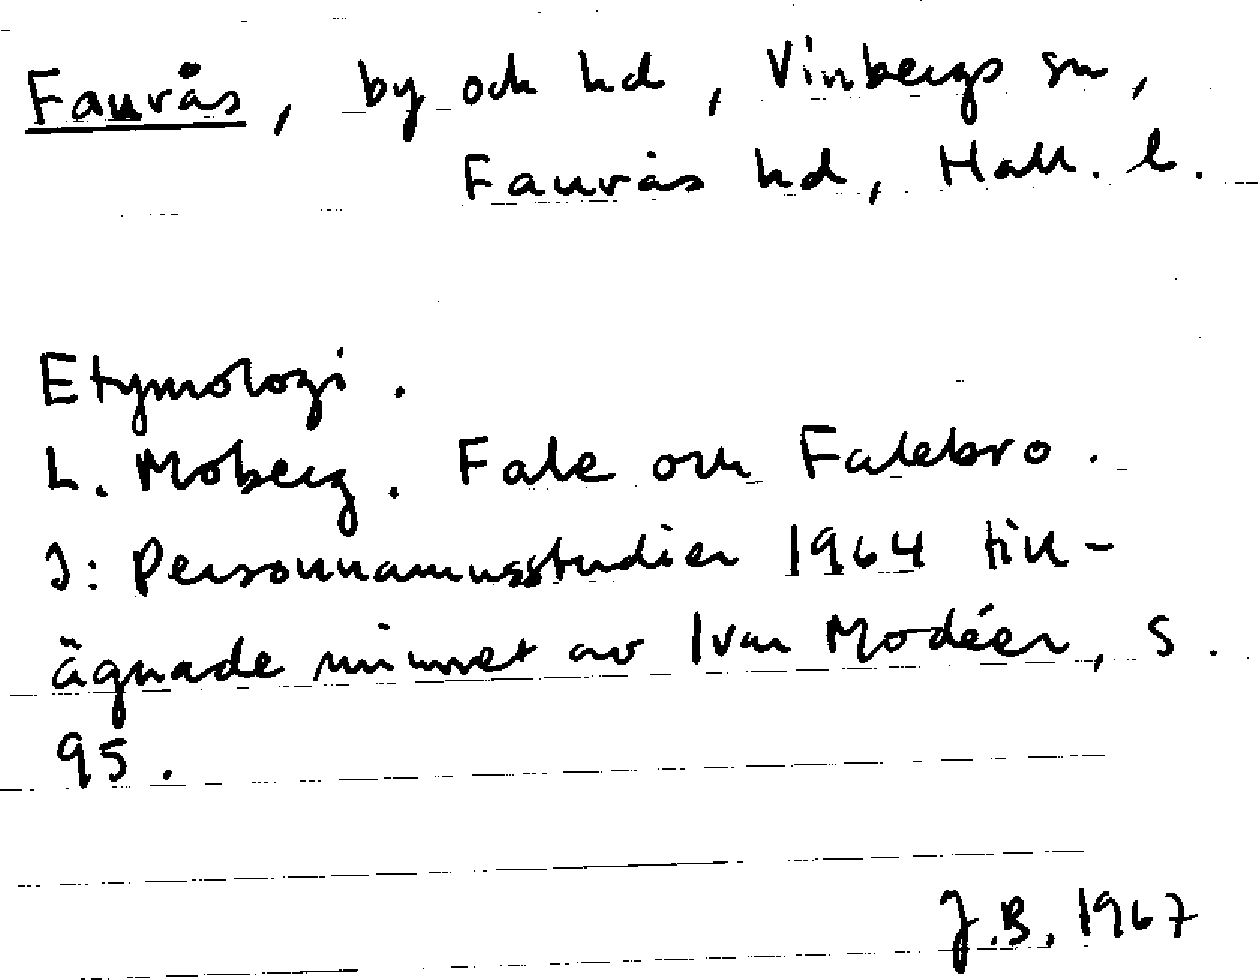 Faurås, by och hd, Vinbergs sn,
Faurås hd, Hall. l.
Etymologi.
L. Moberg. Fale och Falebro.
I: Personnamnsstudier 1964 till-
ägnade minnet av Ivar Modéer, S.
95.
J.B. 1967